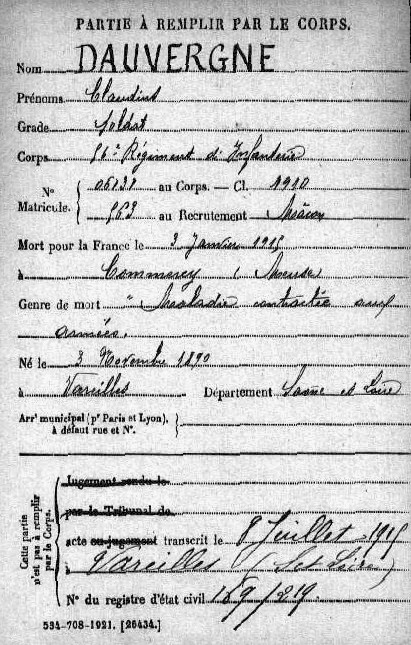 PARTIE À REMPLIR PAR LE CORPS.
Nom DAUVERGNE
Prénoms Claudius
Grade Soldat
Corps 56e Régiment d'Infanterie
N° Matricule. 05131 au Corps. — Cl. 1910
963 au Recrutement Mâcon
Mort pour la France le 3 Janvier 1915
à Commercy (Meuse
Genre de mort " Maladie contractée aux
armées.
Né le 3 Novembre 1890
à Vareilles Département Saône et Loire
Arrt municipal (pr Paris et Lyon),
à défaut rue et N°.
Cette partie n'est pas à remplir par le Corps.
Jugement rendu le
par le Tribunal de
acte ou jugement transcrit le 8 Juillet 1915
à Vareilles (S et Loire)
N° du registre d'état civil 159/219.
534-708-1921. [26434.]